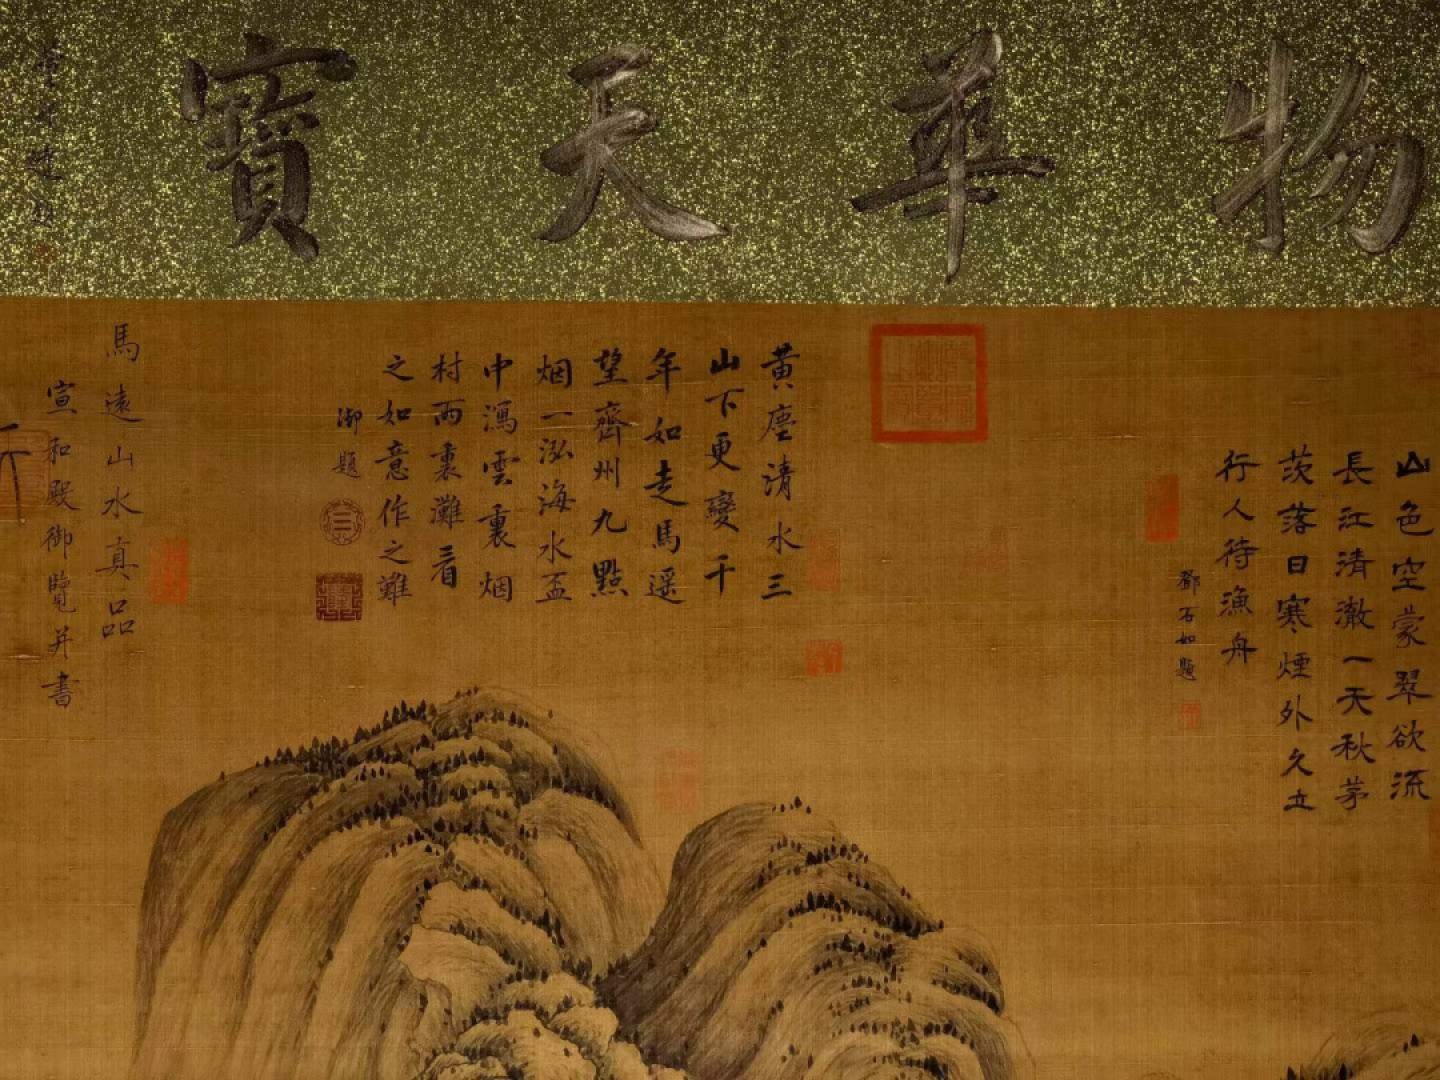 物華天寶
山色空蒙翠欲流
長江清澈一天秋茅
茨落日寒煙外久立
行人待漁舟
鄧石如題
黃塵清水三
山下更變千
年如走馬遥
望齊州九點
烟一泓海水盃
中瀉雲裏烟
村雨裏灘看
之如意作之難
御題
馬遠山水真品
宣和殿御覽并書